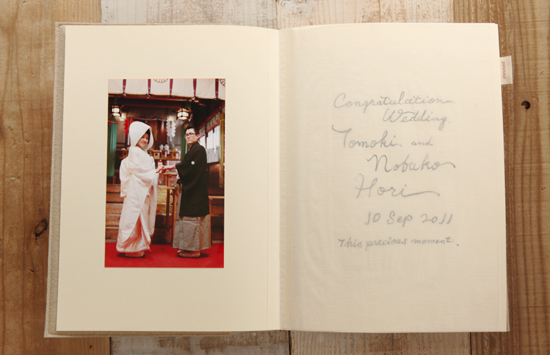 Congratulations
Wedding.
Tomoki and
Nobuko
Hori
10 Sep 2011
This precious moment.